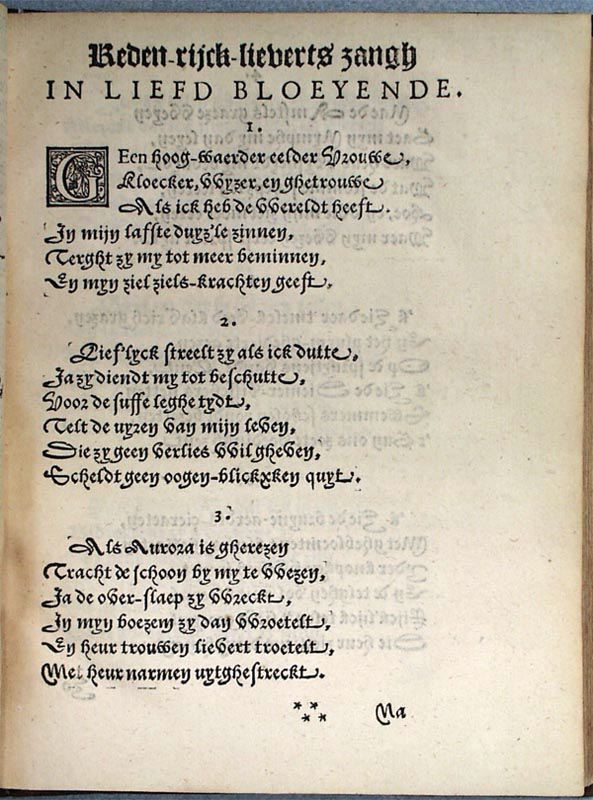 Reden-rijck-lieverts zangh
IN LIEFD BLOEYENDE.
1.
GEen hoog-waerder eelder Vrouwe,
Kloecker, VVyzer, en ghetrouwe
Als ick heb de VVereldt heeft.
In mijn lafste duyz'le zinnen,
Terght zy my tot meer beminnen,
En myn ziel ziels-krachten geeft.
2.
Lief'lyck streelt zy als ick dutte,
Ja zy diendt my tot beschutte,
Voor de suffe leghe tydt,
Telt de uyren van mijn leven,
Die zy geen verlies VVil gheven,
Scheldt geen oogen-blickxken quyt.
3.
Als Aurora is gherezen
Tracht de schoon by my te VVezen,
Ja de over-slaep zy VVreckt,
In myn boezem zy dan VVroetelt,
En heur trouwen lievert troetelt,
Met heur narmen uytghestreckt.
Ma